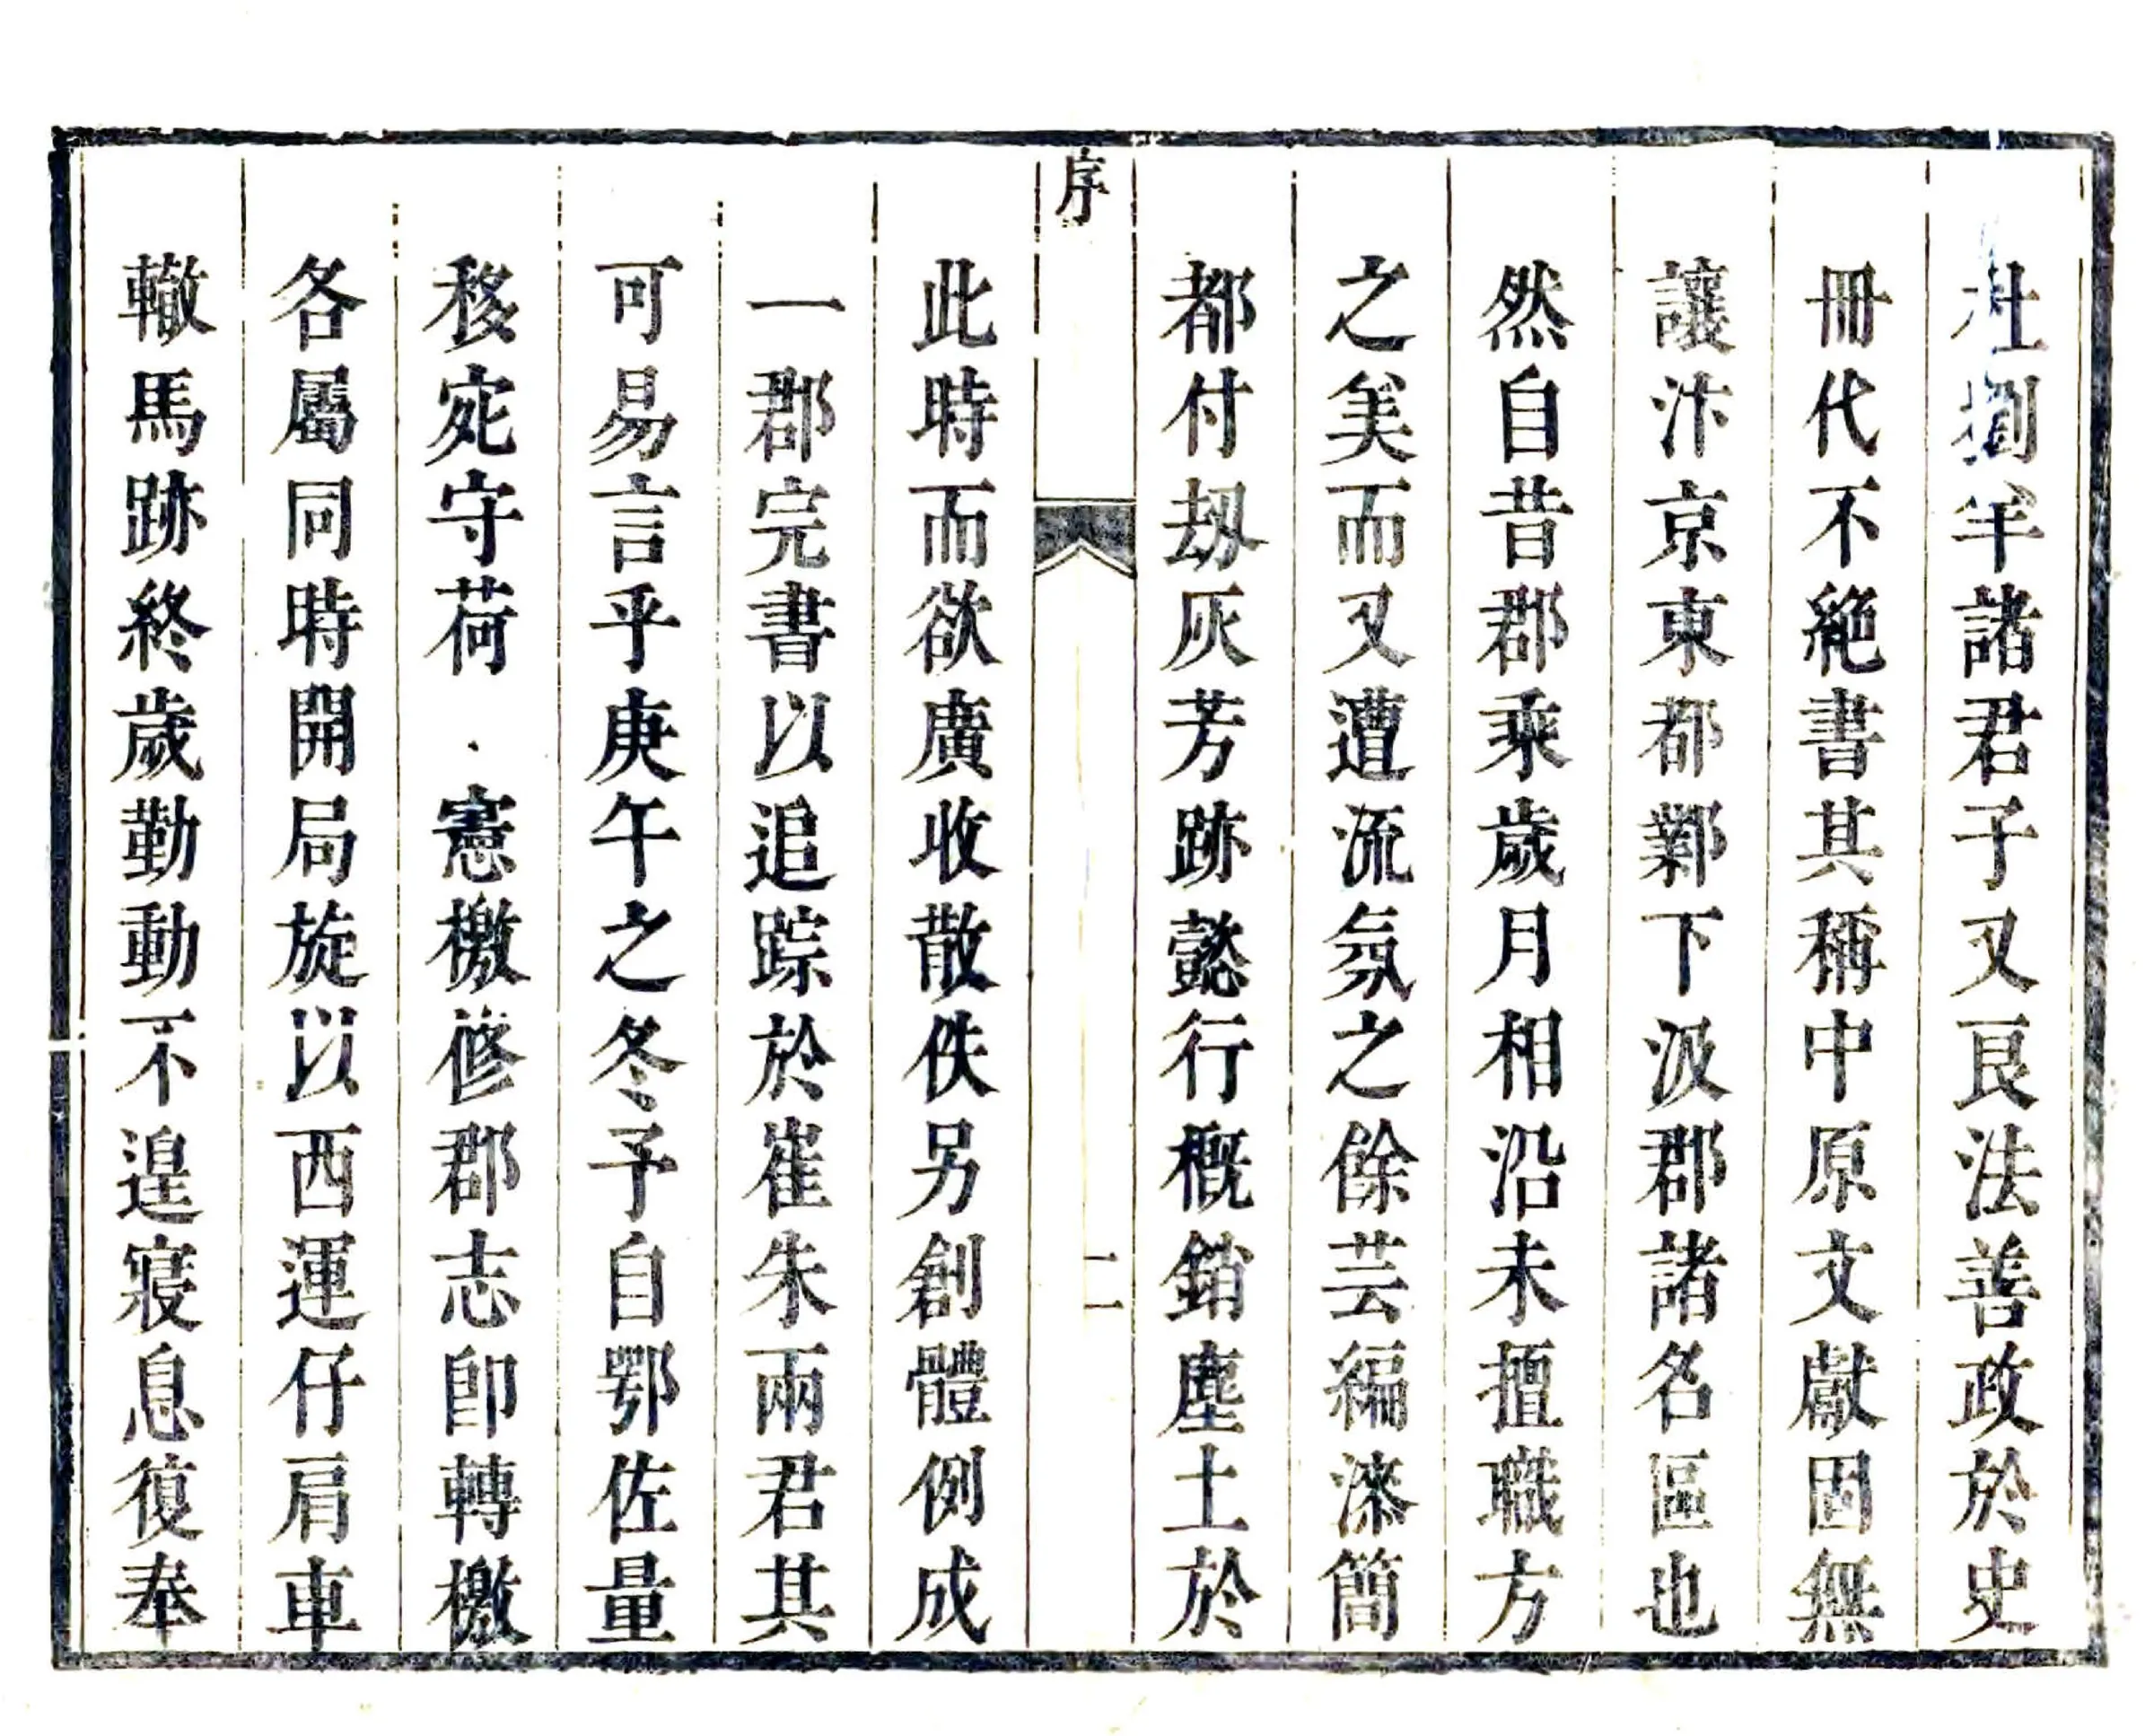 杜劉羊諸君子又良法善政於史
冊代不絕書其稱中原文獻固無
讓汴京東都鄴下汲郡諸名區也
然自昔郡乘歲月相沿未擅職方
之美而又遭流氛之餘芸編漆簡
都付刼灰芳跡懿行槪銷塵土於
序
二
此時而欲廣收散佚另創體例成
一郡完書以追踪於崔朱兩君其
可易言乎庚午之冬予自鄂佐量
移宛守荷 憲檄修郡志卽轉檄
各屬同時開局旋以西運仔肩車
轍馬跡終歲勤動不遑寢息復奉